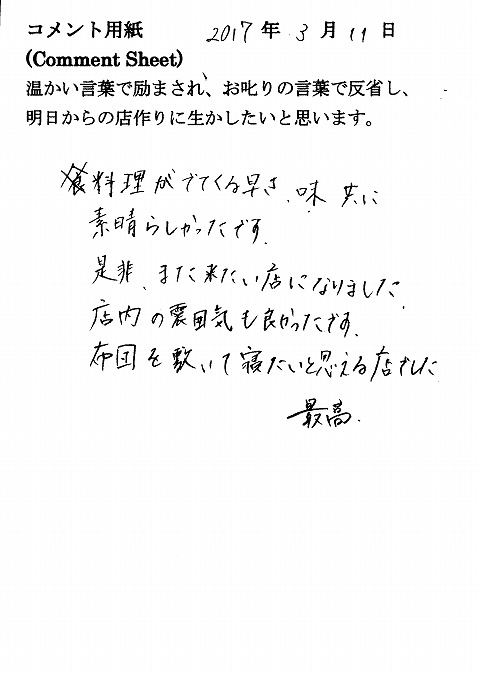 コメント用紙 2017 年 3 月 11 日
(Comment Sheet)
温かい言葉で励まされ、お叱りの言葉で反省し、
明日からの店作りに生かしたいと思います。
料理がでてくる早さ、味 共に
素晴らしかったです。
是非、また来たい店になりました。
店内の雰囲気も良かったです。
布団を敷いて寝たいと思える店でした
最高.